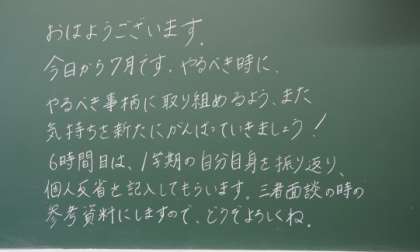 おはようございます。
今日から7月です。やるべき時に、
やるべき事柄に取り組めるよう、また
気持ちを新たにがんばっていきましょう!
6時間目は、1学期の自分自身を振り返り、
個人反省を記入してもらいます。三者面談の時の
参考資料にしますので、どうぞよろしくね。